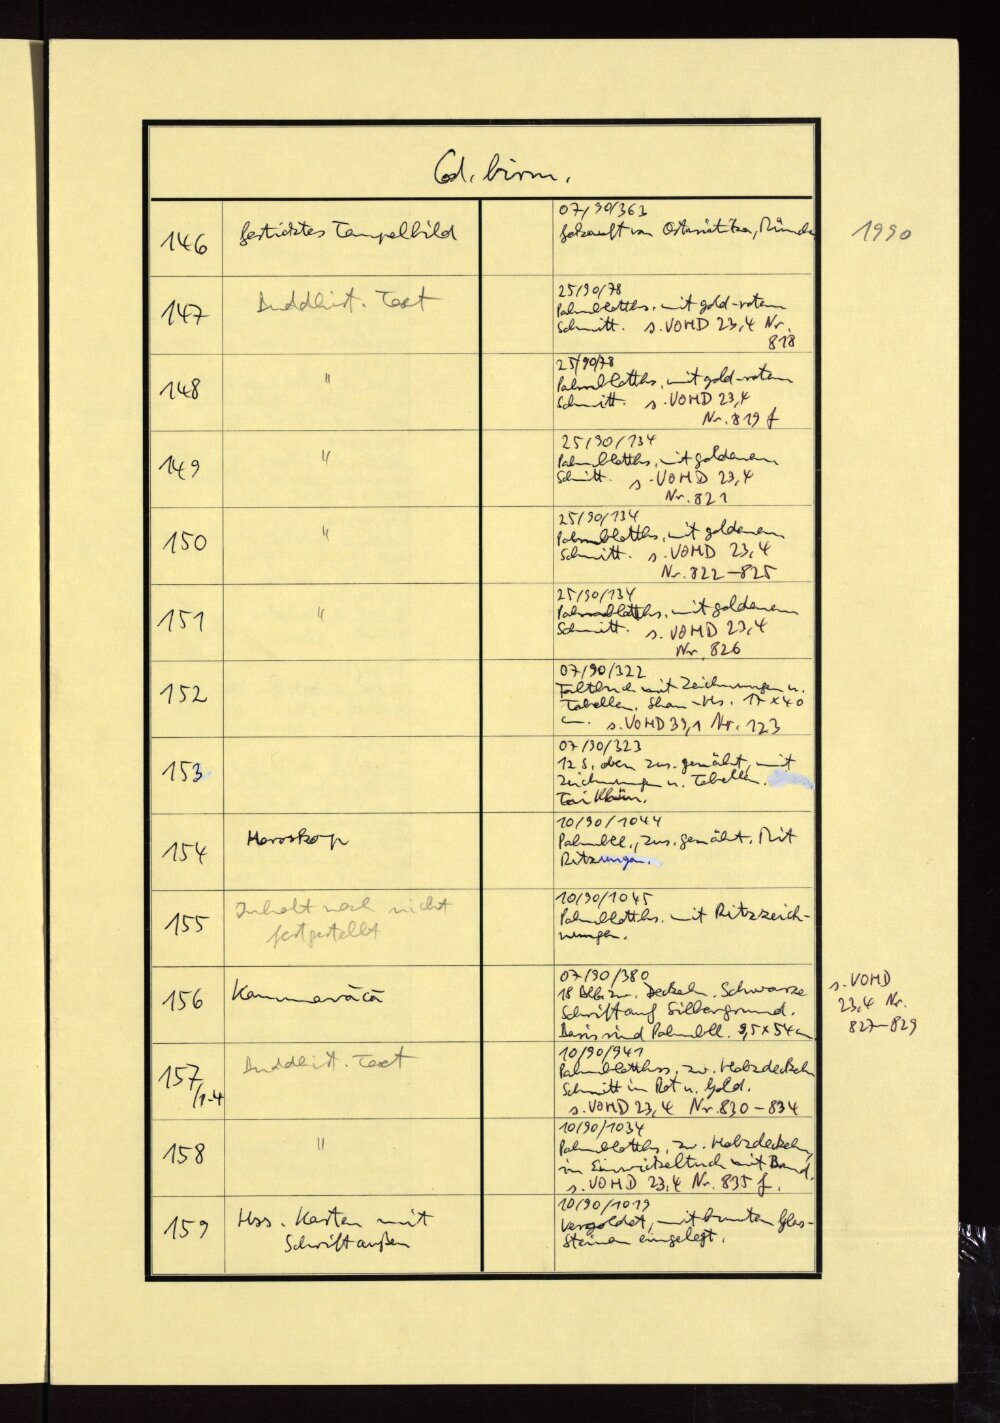 Cod. birm.
146
gesticktes Tempelbild
07/90/363
gekauft von
1990
147
Buddhist. Text
25/90/78
Palmblatths. mit gold-rotem
Schnitt. s. VOHD 23,4 Nr.
818
148
"
25/90/78
Palmblatths. mit gold-rotem
Schnitt. s. VOHD 23,4
Nr. 819 f
149
"
25/90/134
Palmblatths. mit goldenem
Schnitt. s. VOHD 23,4
Nr. 821
150
"
25/90/134
Palmblatths. mit goldenem
Schnitt. s. VOHD 23,4
Nr. 822-825
151
"
25/90/134
Palmblatths. mit goldenem
Schnitt. s. VOHD 23,4
Nr. 826
152
07/90/322
Faltbuch mit Zeichnungen u.
Tabellen. Shan-Hs. 17 x 40
cm. s. VOHD 39,1 Nr. 123
153
07/90/323
12 S. oben zus. genäht, mit
Zeichnungen u. Tabellen.
Tai Khün.
154
Horoskop
10/90/1044
Palmbll., zus. genäht. Mit
Ritzungen.
155
Inhalt noch nicht
festgestellt
10/90/1045
Palmblatths. mit Ritzzeich-
nungen.
156
Kammavācā
07/90/380
18 Bll. zw. Deckeln. Schwarze
Schrift auf Silbergrund.
Basis sind Palmbll. 9,5 x 54 cm
s. VOHD
23,4 Nr.
827-829
157
/1-4
Buddhist. Text
10/90/941
Palmblatthss. zw. Holzdeckeln
Schnitt in Rot u. Gold.
s. VOHD 23,4 Nr. 830-834
158
"
10/90/1034
Palmblatths. zw. Holzdeckeln,
in Einwickeltuch mit Band.
s. VOHD 23,4 Nr. 835 f.
159
Hss. Kasten mit
Schrift außen
10/90/1019
Vergoldet, mit bunten Glas-
steinen eingelegt.